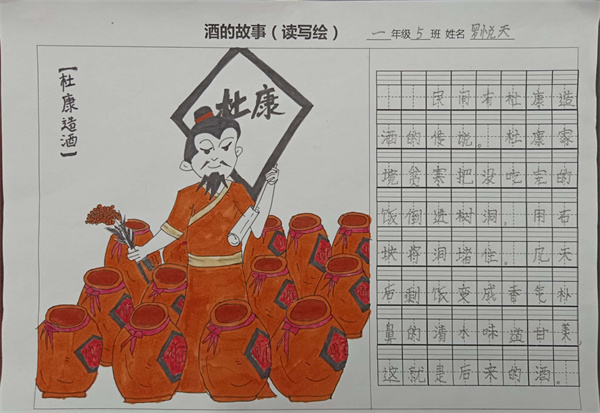 酒的故事（读写绘）
一年级5班 姓名
【杜康造酒】
杜康
民间有杜康造
酒的传说。杜康家
境贫寒把没吃完的
饭倒进树洞。用石
块将洞堵住。几天
后剩饭变成香气扑
鼻的清水味道甘美
这就是后来的酒。